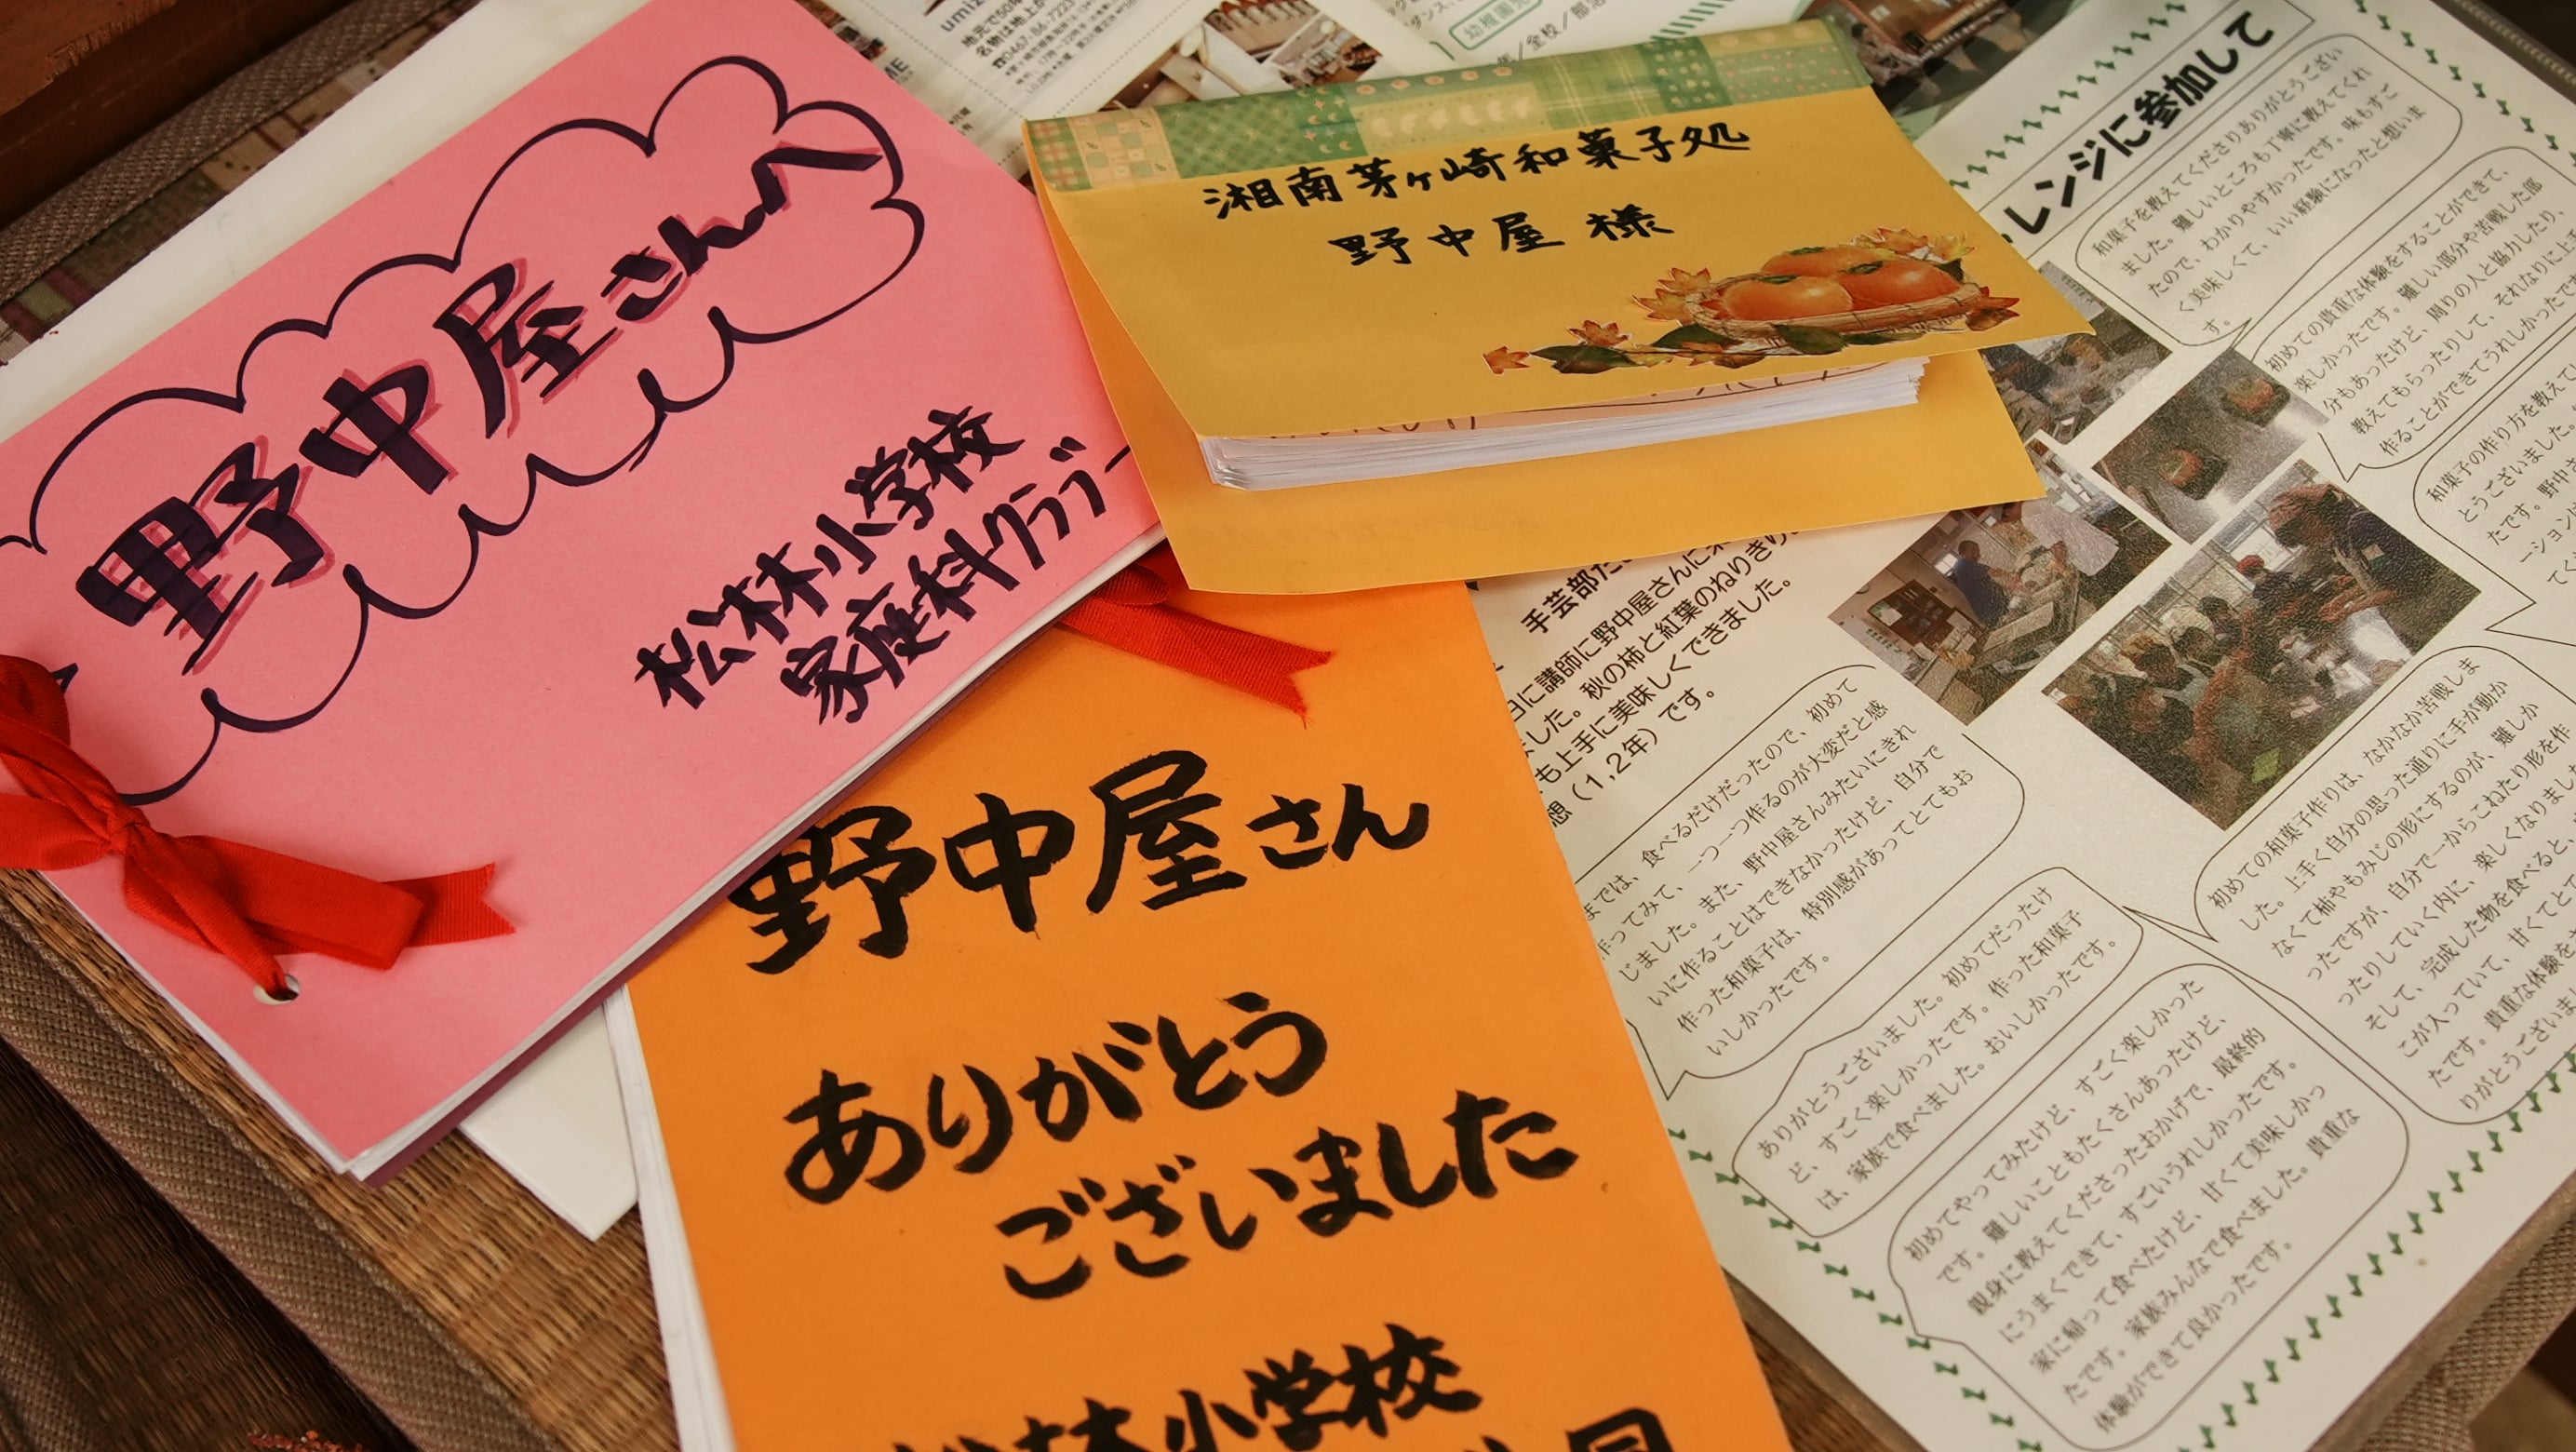 野中屋さんへ
松林小学校
家庭科クラブ
湘南茅ヶ崎和菓子処
野中屋 様
野中屋さん
ありがとう
ございました
小学校
地元で50年
名物は地上が
☎0467-86-7223
幼稚園児
年/全校/部活
レンジに参加して
和菓子を教えてくださりありがとうござい
ました。難しいところも丁寧に教えてくれ
たので、わかりやすかったです。味もすご
く美味しくて、いい経験になったと思いま
す。
初めての貴重な体験をすることができて、
楽しかったです。難しい部分や苦戦した部
分もあったけど、周りの人と協力したり、
教えてもらったりして、それなりに上手
作ることができてうれしかったで
和菓子の作り方を教えて
とうございました。
たです。野中さ
ーション
てく
手芸部
日に講師に野中屋さんに来
ました。秋の柿と紅葉のねりきり
も上手に美味しくできました。
想(1,2年)です。
までは、食べるだけだったので、初めて
作ってみて、一つ一つ作るのが大変だと感
じました。また、野中屋さんみたいにきれ
いに作ることはできなかったけど、自分で
作った和菓子は、特別感があってとてもお
いしかったです。
初めての和菓子作りは、なかなか苦戦しま
した。上手く自分の思った通りに手が動か
なくて柿やもみじの形にするのが、難しか
ったですが、自分で一からこねたり形を作
ったりしていく内に、楽しくなりました
そして、完成した物を食べると、
こが入っていて、甘くてと
たです。貴重な体験を
りがとうございま
ありがとうございました。初めてだったけ
ど、すごく楽しかったです。作った和菓子
は、家族で食べました。おいしかったです。
初めてやってみたけど、すごく楽しかった
です。難しいこともたくさんあったけど、
親身に教えてくださったおかげで、最終的
にうまくできて、すごいうれしかったです。
家に帰って食べたけど、甘くて美味しかっ
たです。家族みんなで食べました。貴重な
体験ができて良かったです。